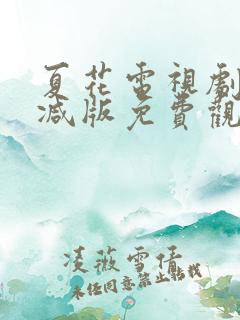 夏花電視劇
減版免費觀
凌薇雪倩
未经同意禁止转载